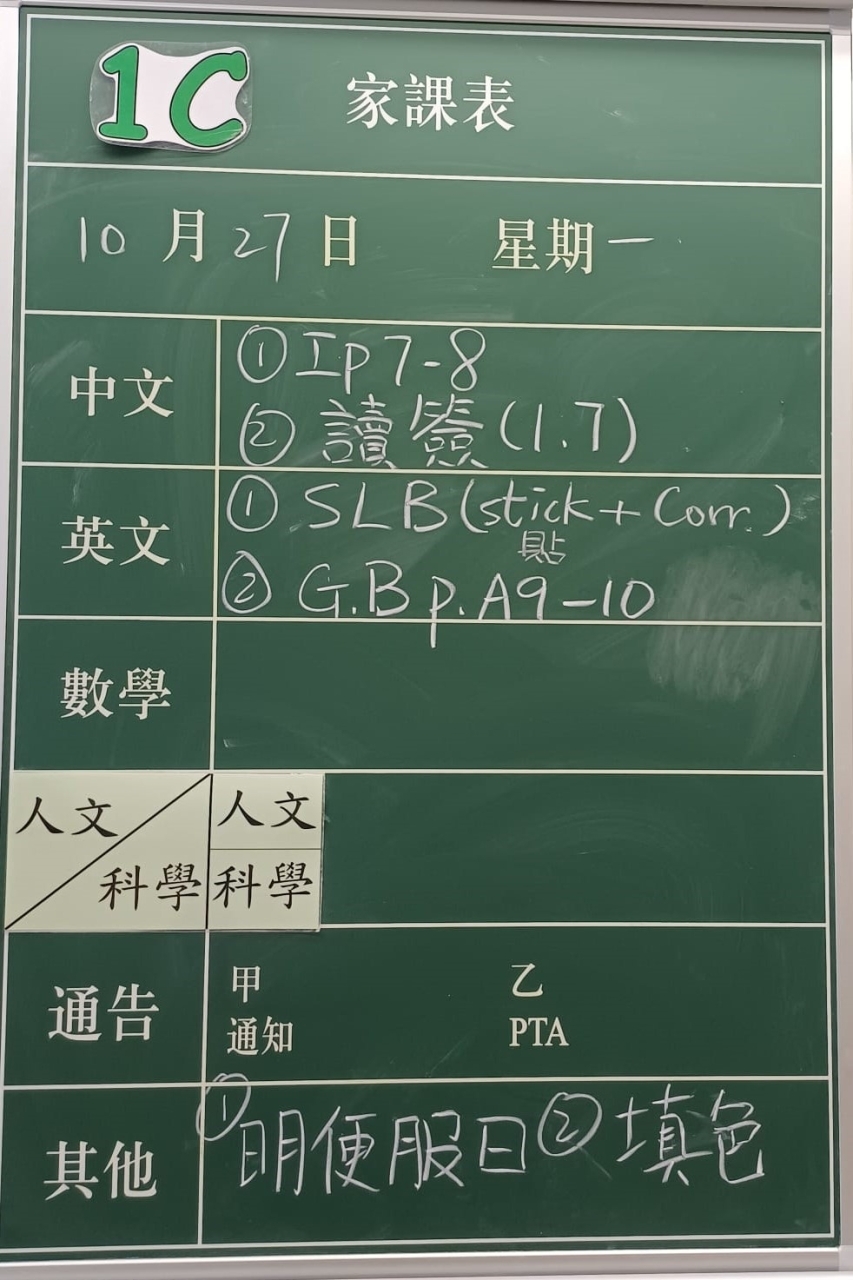 1C 家課表
10月27日 星期一
中文
①工p7-8
②讀簽(1.7)
英文
①SLB(stick+Corr.)
貼
②G.B p.A9-10
數學
人文 人文
科學 科學
通告
甲 乙
通知 PTA
其他
①明便服日②填色